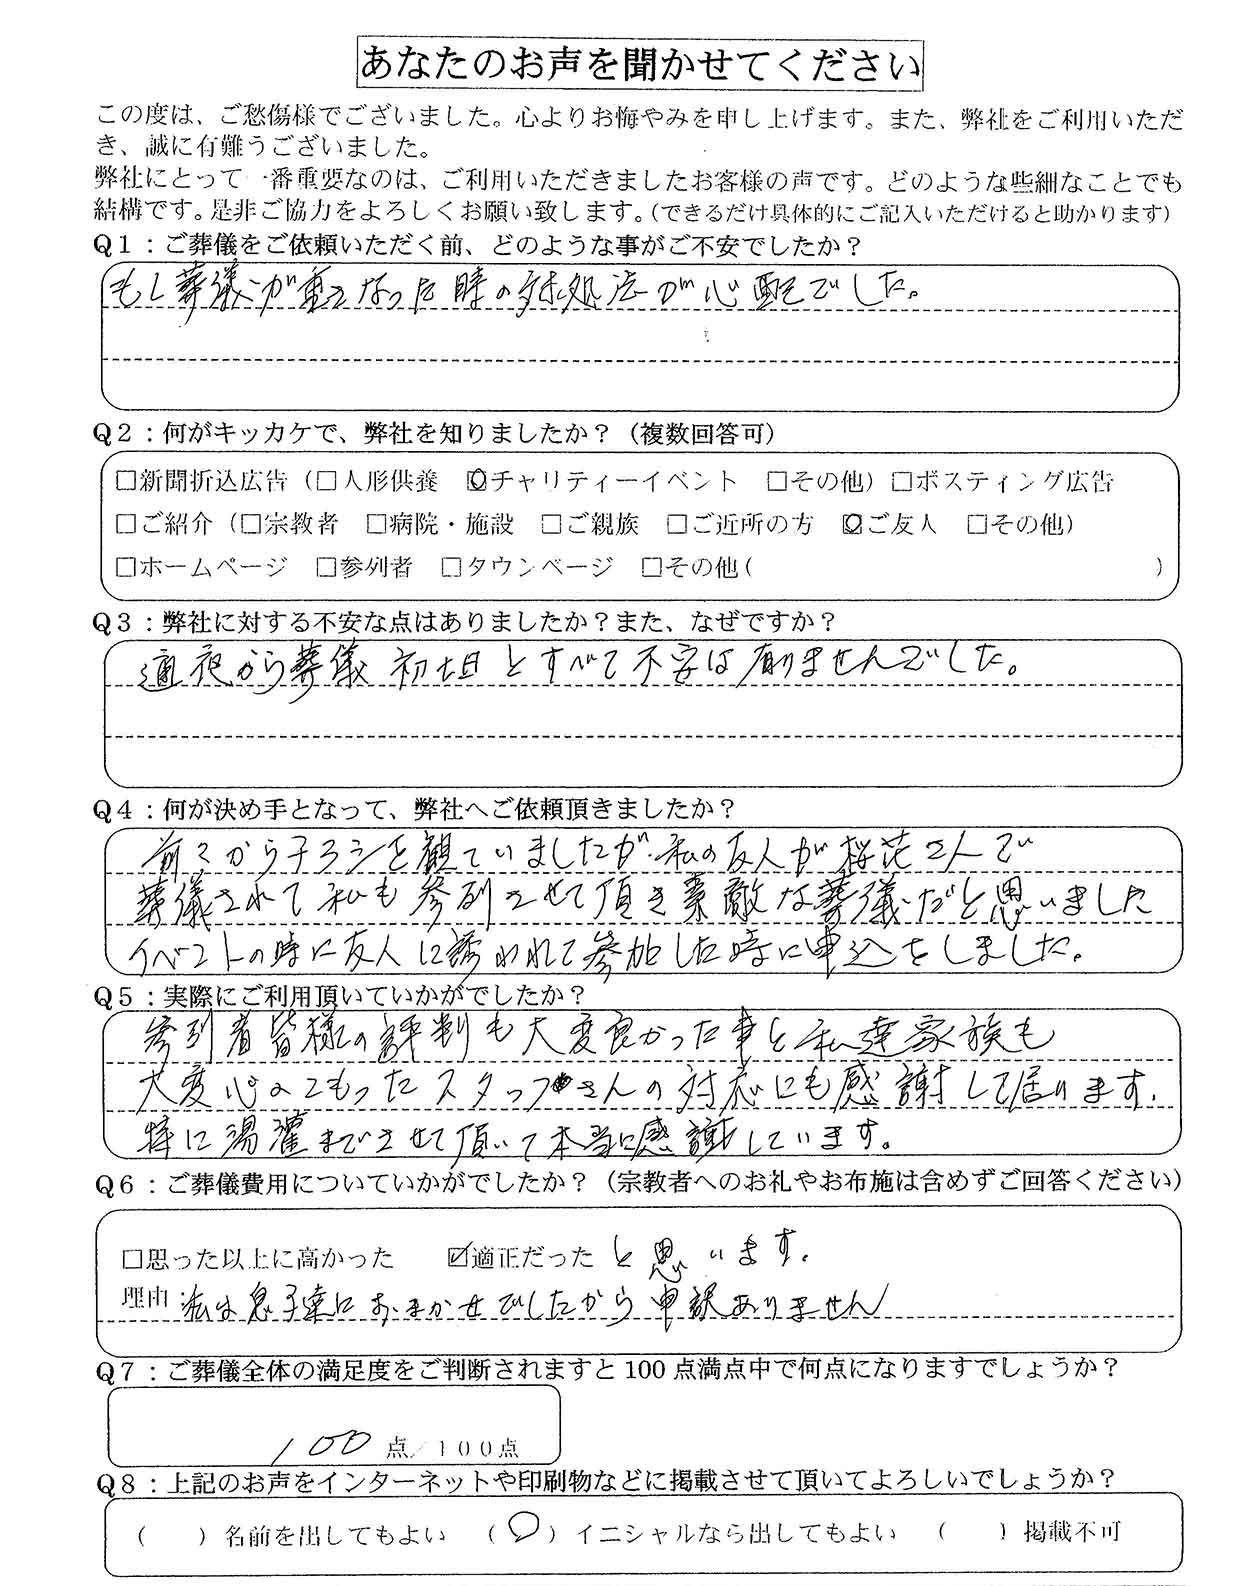 あなたのお声を聞かせてください
この度は、ご愁傷様でございました。心よりお悔やみを申し上げます。また、弊社をご利用いただ
き、誠に有難うございました。
弊社にとって一番重要なのは、ご利用いただきましたお客様の声です。どのような些細なことでも
結構です。是非ご協力をよろしくお願い致します。（できるだけ具体的にご記入いただけると助かります）
Q1：ご葬儀をご依頼いただく前、どのような事がご不安でしたか？
もし葬儀が重なった時の対処法が心配でした。
Q2：何がキッカケで、弊社を知りましたか？（複数回答可）
□新聞折込広告（□人形供養 ☑チャリティーイベント □その他）□ポスティング広告
□ご紹介（□宗教者 □病院・施設 □ご親族 □ご近所の方 ☑ご友人 □その他）
□ホームページ □参列者 □タウンページ □その他（ ）
Q3：弊社に対する不安な点はありましたか？また、なぜですか？
通夜から葬儀 初七日とすべて不安は有りませんでした。
Q4：何が決め手となって、弊社へご依頼頂きましたか？
前々からチラシを観ていましたが、私の友人が桜花さんで
葬儀されて私も参列させて頂き素敵な葬儀だと思いました
イベントの時に友人に誘われて参加した時に申込をしました。
Q5：実際にご利用頂いていかがでしたか？
参列者皆様の評判も大変良かった事と私達家族も
大変心のこもったスタッフさんの対応にも感謝して居ります。
特に湯灌までさせて頂いて本当に感謝しています。
Q6：ご葬儀費用についていかがでしたか？（宗教者へのお礼やお布施は含めずご回答ください）
□思った以上に高かった ☑適正だった と思います。
理由：私は息子達におまかせでしたから申訳ありません
Q7：ご葬儀全体の満足度をご判断されますと100点満点中で何点になりますでしょうか？
100 点/100点
Q8：上記のお声をインターネットや印刷物などに掲載させて頂いてよろしいでしょうか？
（ ）名前を出してもよい （○）イニシャルなら出してもよい （ ）掲載不可